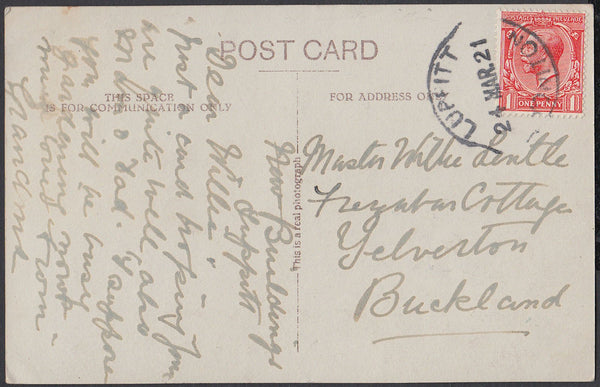 POST CARD
THIS SPACE
IS FOR COMMUNICATION ONLY
FOR ADDRESS ONLY
This is a real photograph
LUPPITT
24 MAR. 21
HONITON
POSTAGE
ONE PENNY
1 1
New Buildings
Luppitt
Dear Willie,
Just a card hoping you
are quite well, also
& Dad. I suppose
you will be busy
gardening now
much love from
Grandma
Master Willie
Cottage
Yelverton
Buckland